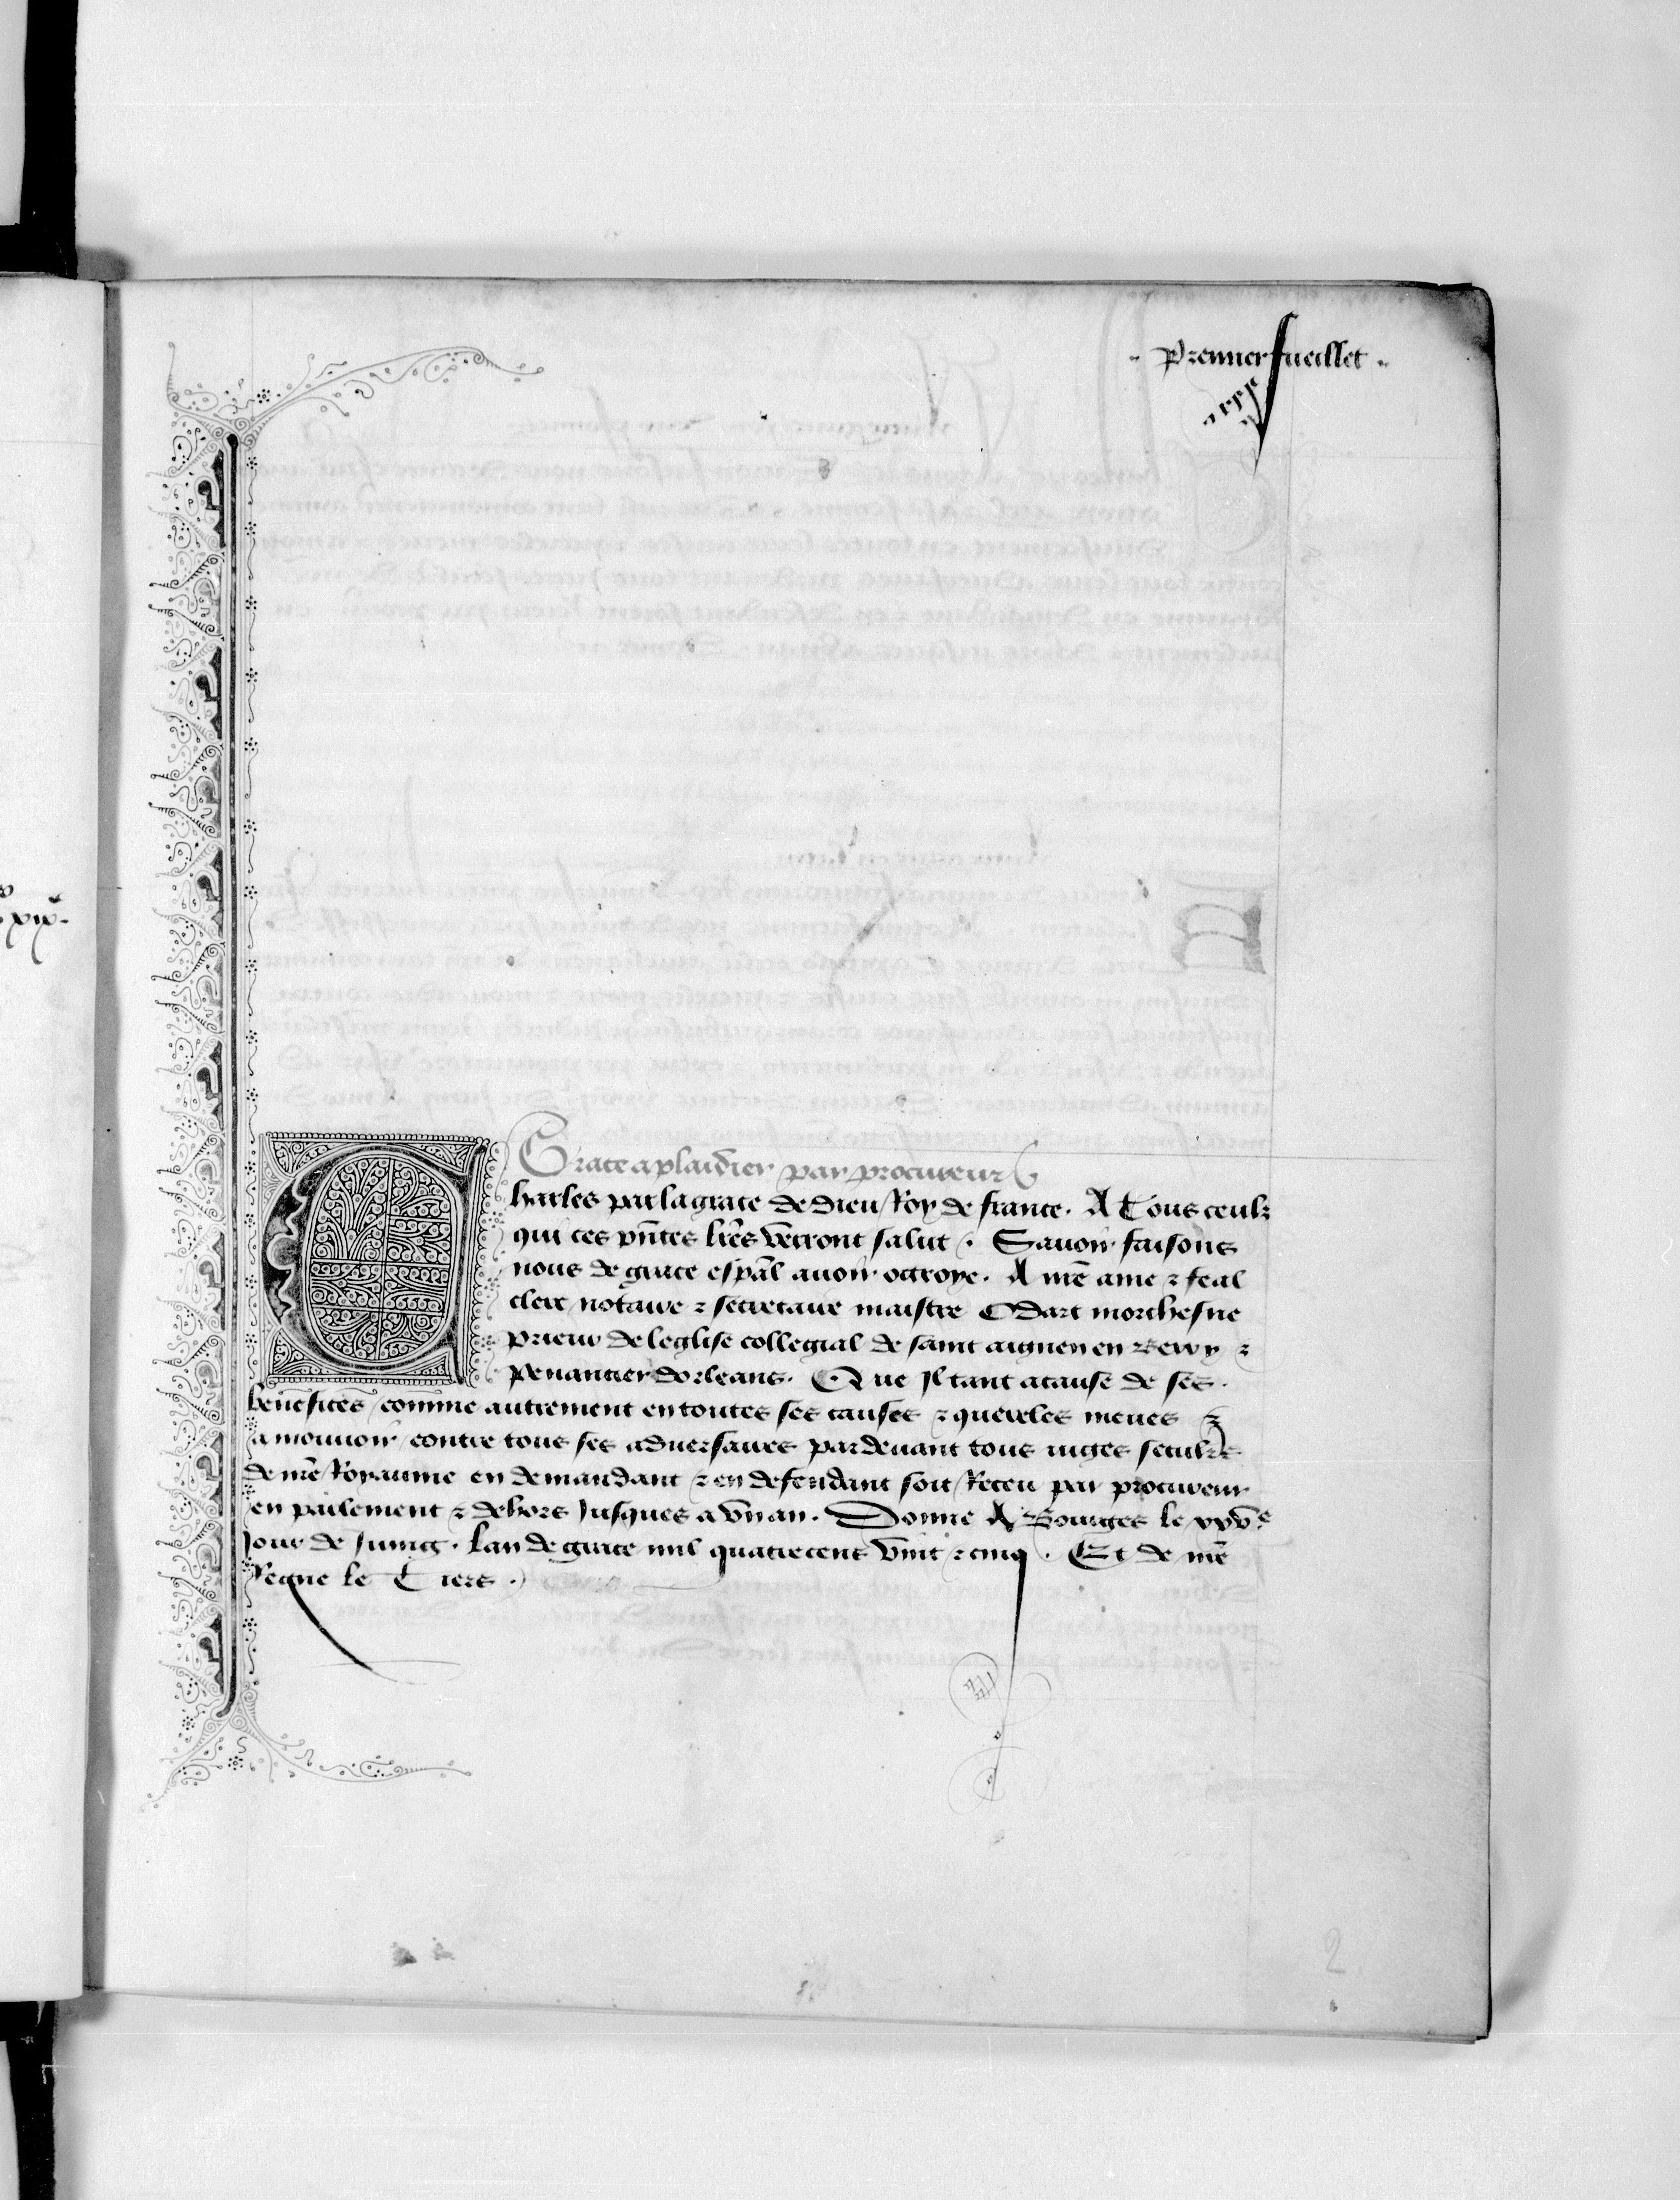 Premier fueillet
Grace a plaidier par procureur
Charles par la grace de dieu Roy de france. A Tous ceulz
qui ces pñtes lr̃es verront salut. Sauoir faisons
nous de grace esp̃al auoir octroye. A nr̃e ame ⁊ feal
clerc notaire ⁊ secretaire maistre Odart morchesne
prieur de leglise collegial de saint aignen en Berry ⁊
penancier dorleans. Que Il tant a cause de ses
benefices comme autrement en toutes ses causes ⁊ quereles meues ⁊
a mouuoir contre tous ses aduersaires par deuant tous iuges seculrs
de nr̃e Royaume en demandant ⁊ en defendant soit Receu par procureur
en parlement ⁊ dehors Jusques a vn an. Donne A Bourges le xxvᵉ
Jour de Juing. Lan de grace mil quatrecens vint ⁊ cinq. Et de nr̃e
Regne le Tiers.
2